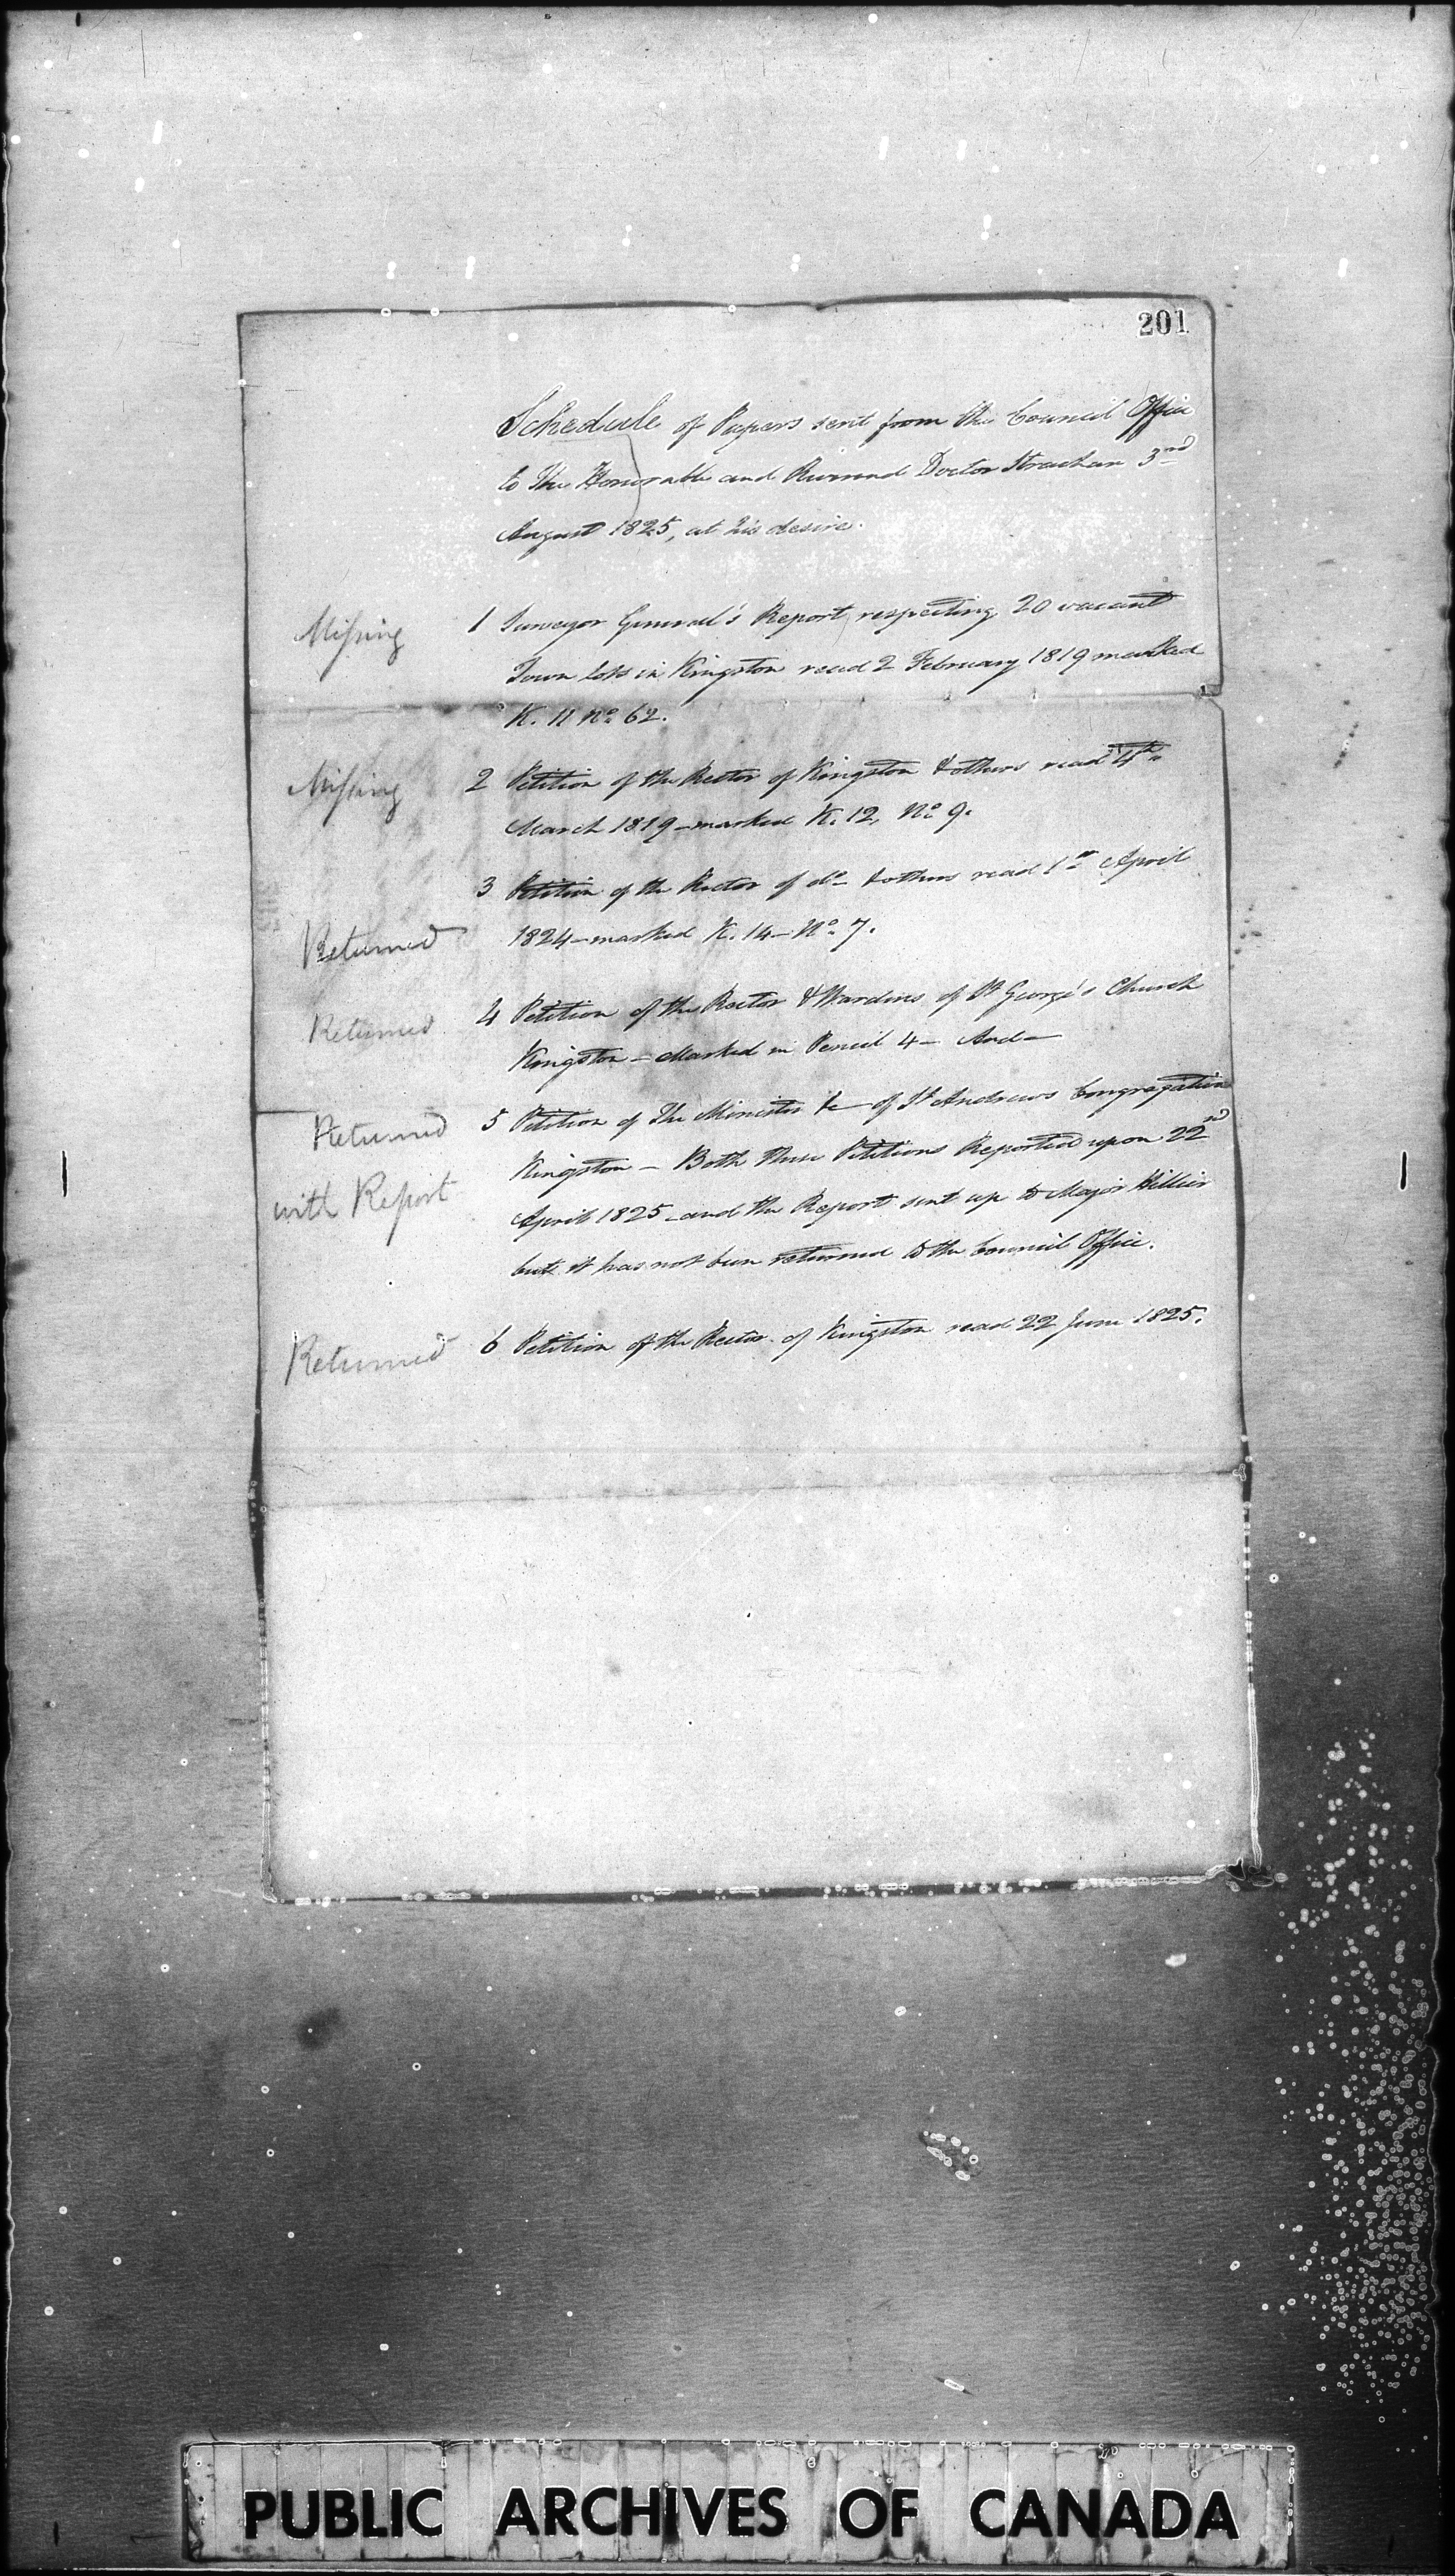 201
Schedule of Papers sent from the Council Office
to The Honorable and Reverend Doctor Strachan 3rd
August 1825, at his desire.
Missing 1 Surveyor General's Report respecting 20 vacant
Town lots in Kingston read 2 February 1819 marked
K. 11 No. 62.
Missing 2 Petition of the Rector of Kingston & others read 4th
March 1819 - marked K. 12, No. 9.
3 Petition of the Rector of do- & others read 1st April
Returned 1824 - marked K. 14 - No. 7.
Returned 4 Petition of the Rector & Wardens of St George's Church
Kingston - Marked in Pencil 4 - And -
Returned 5 Petition of The Minister &c - of St Andrews Congregation
with Report Kingston - Both these Petitions Reported upon 22nd
April 1825 - and the Report sent up to Major Hillier
but it has not been returned to the Council Office.
Returned 6 Petition of the Rector of Kingston read 22 June 1825.
PUBLIC ARCHIVES OF CANADA